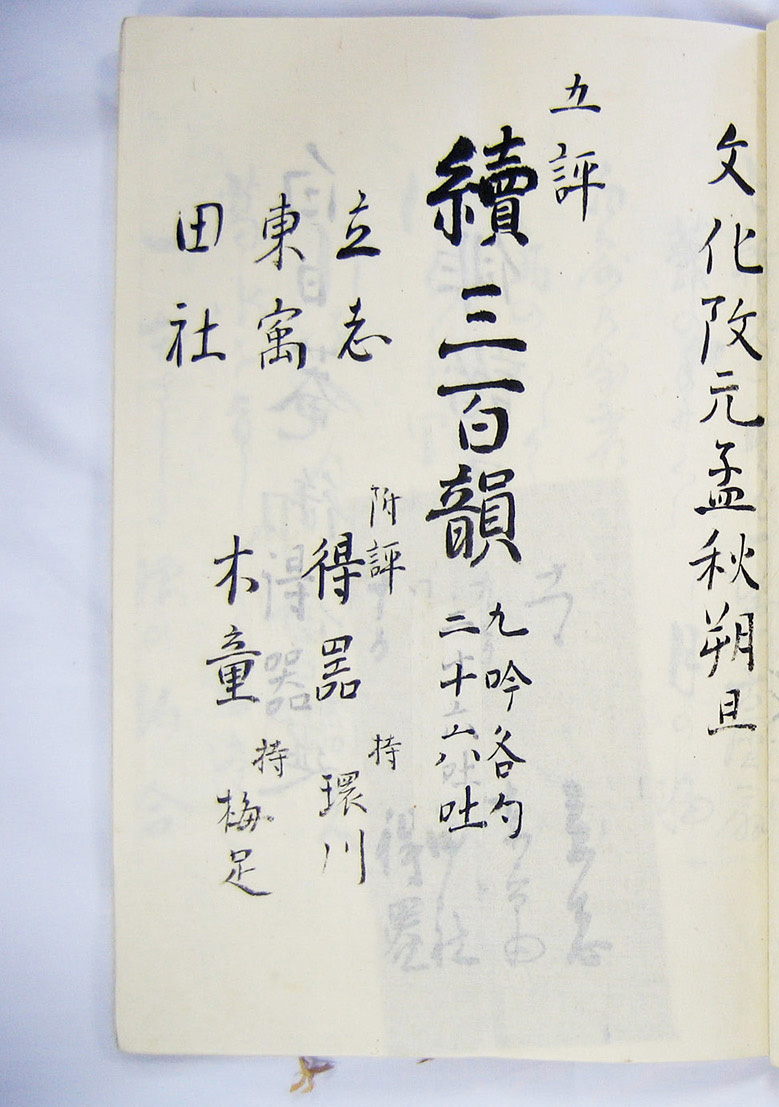 文化改元孟秋朔旦
五評
續三百韻
九吟各勻
二十六吐
立志
東寓
田社
附評
得器
持
環川
木童
持
梅足